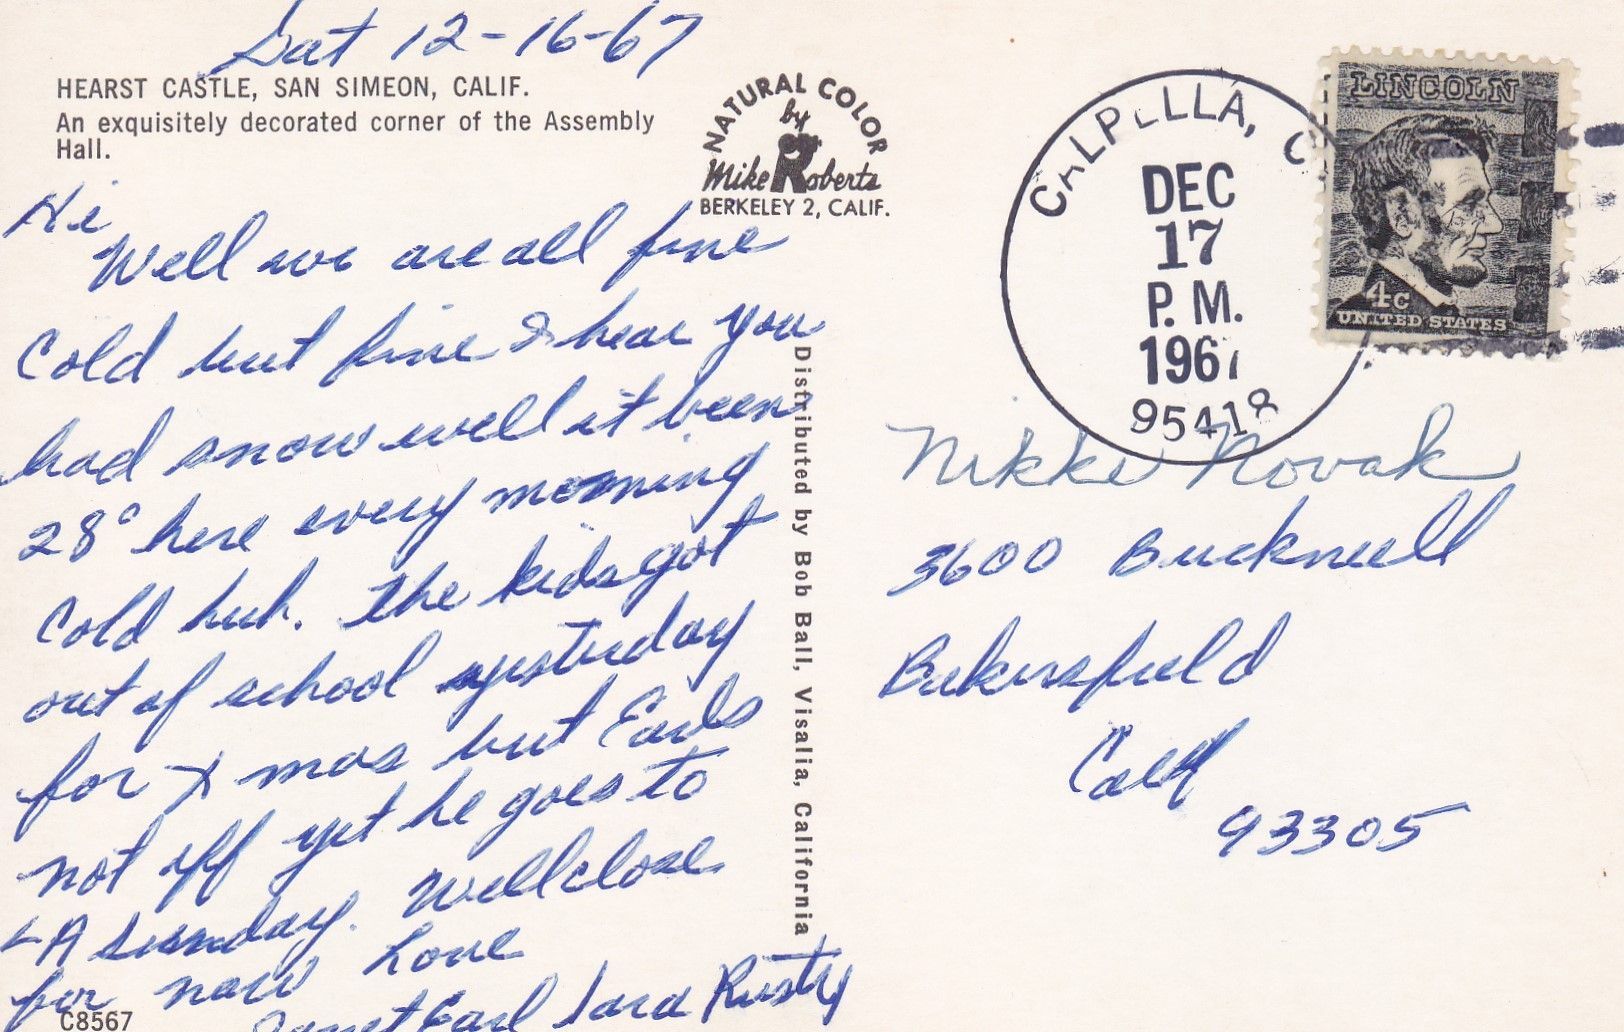 Sat 12-16-67
HEARST CASTLE, SAN SIMEON, CALIF.
An exquisitely decorated corner of the Assembly
Hall.
NATURAL COLOR
by
Mike Roberts
BERKELEY 2, CALIF.
Hi
Well we are all fine
Cold but fine I hear you
had snow well it been
28° here every morning
Cold huh. The kids got
out of school yesturday
for X mas but Earls
not off yet he goes to
LA Sunday. Well close
for now Love
Janet Earl Sara Rusty
C8567
Distributed by Bob Ball, Visalia, California
CALPELLA, C
DEC
17
P. M.
1967
95418
LINCOLN
4c
UNITED STATES
Nikki Novak
3600 Bucknell
Bakersfield
Calif
93305